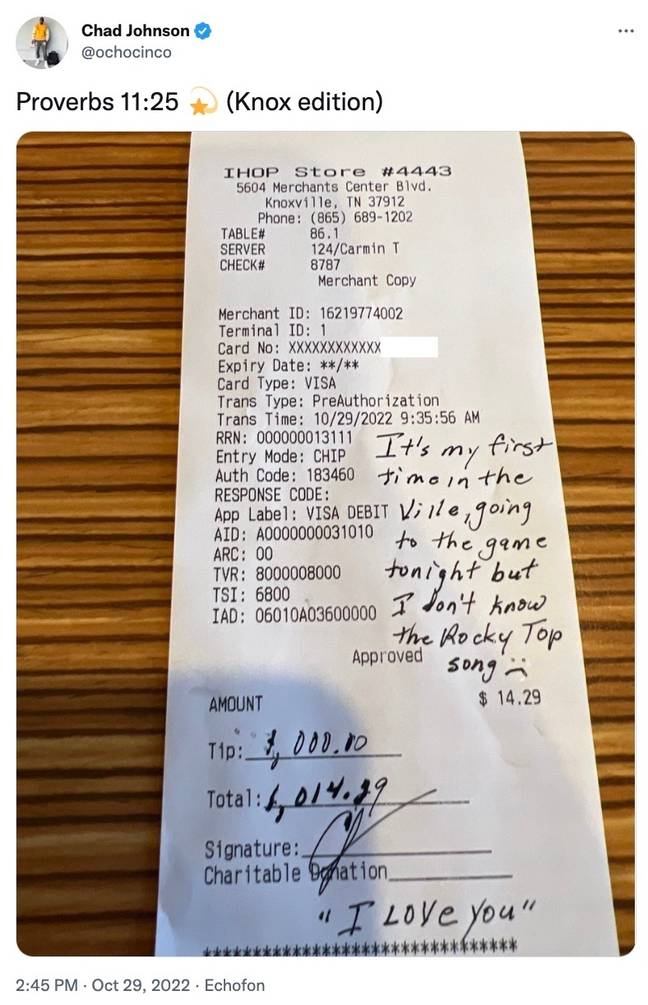 Chad Johnson
@ochocinco
Proverbs 11:25 💫 (Knox edition)
IHOP Store #4443
5604 Merchants Center Blvd.
Knoxville, TN 37912
Phone: (865) 689-1202
TABLE# 86.1
SERVER 124/Carmin T
CHECK# 8787
Merchant Copy
Merchant ID: 16219774002
Terminal ID: 1
Card No: XXXXXXXXXXXX
Expiry Date: **/**
Card Type: VISA
Trans Type: PreAuthorization
Trans Time: 10/29/2022 9:35:56 AM
RRN: 000000013111
Entry Mode: CHIP
Auth Code: 183460
RESPONSE CODE:
App Label: VISA DEBIT
AID: A0000000031010
ARC: 00
TVR: 8000008000
TSI: 6800
IAD: 06010A03600000
It's my first
time in the
Ville, going
to the game
tonight but
I don't know
the Rocky Top
song ☹
Approved
AMOUNT $ 14.29
Tip: 1,000.00
Total: 1,014.29
Signature:
Charitable Donation
"I Love you"
*********************************
2:45 PM · Oct 29, 2022 · Echofon